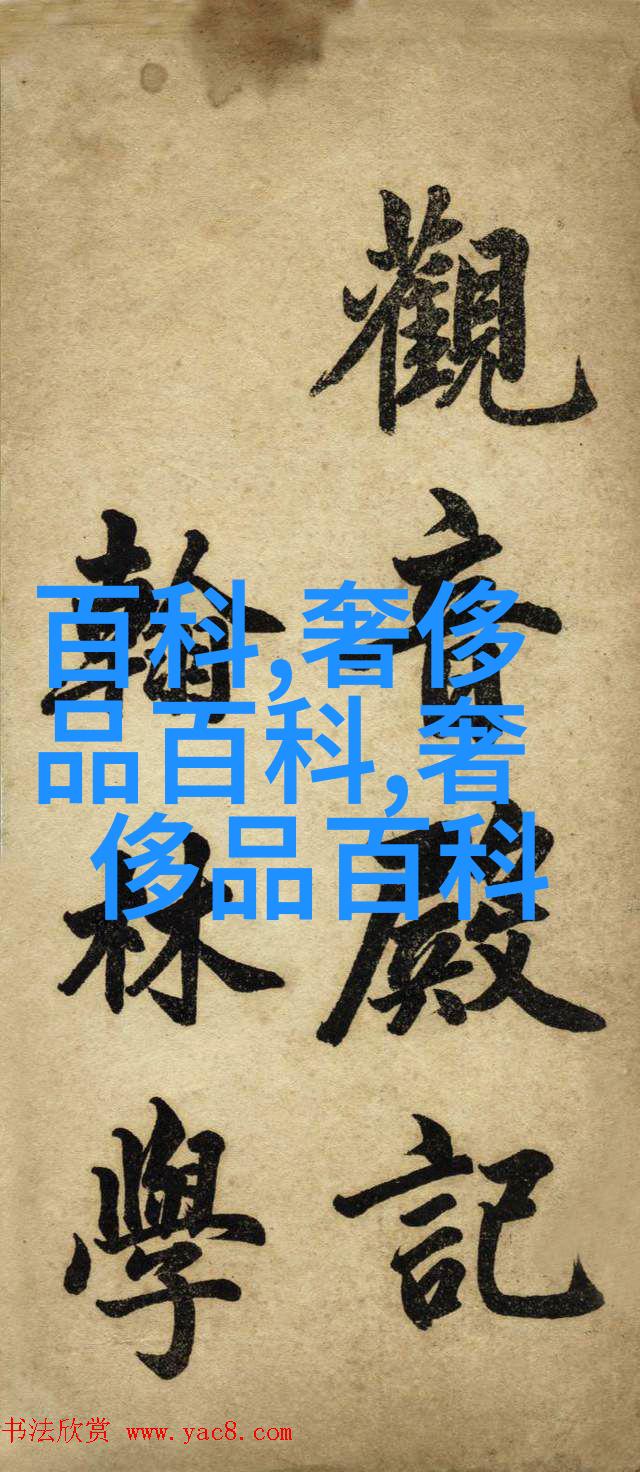 觀音殿記
翰林學
百科,奢侈
品百科,奢
侈品百科
书法欣赏 www.yac8.com